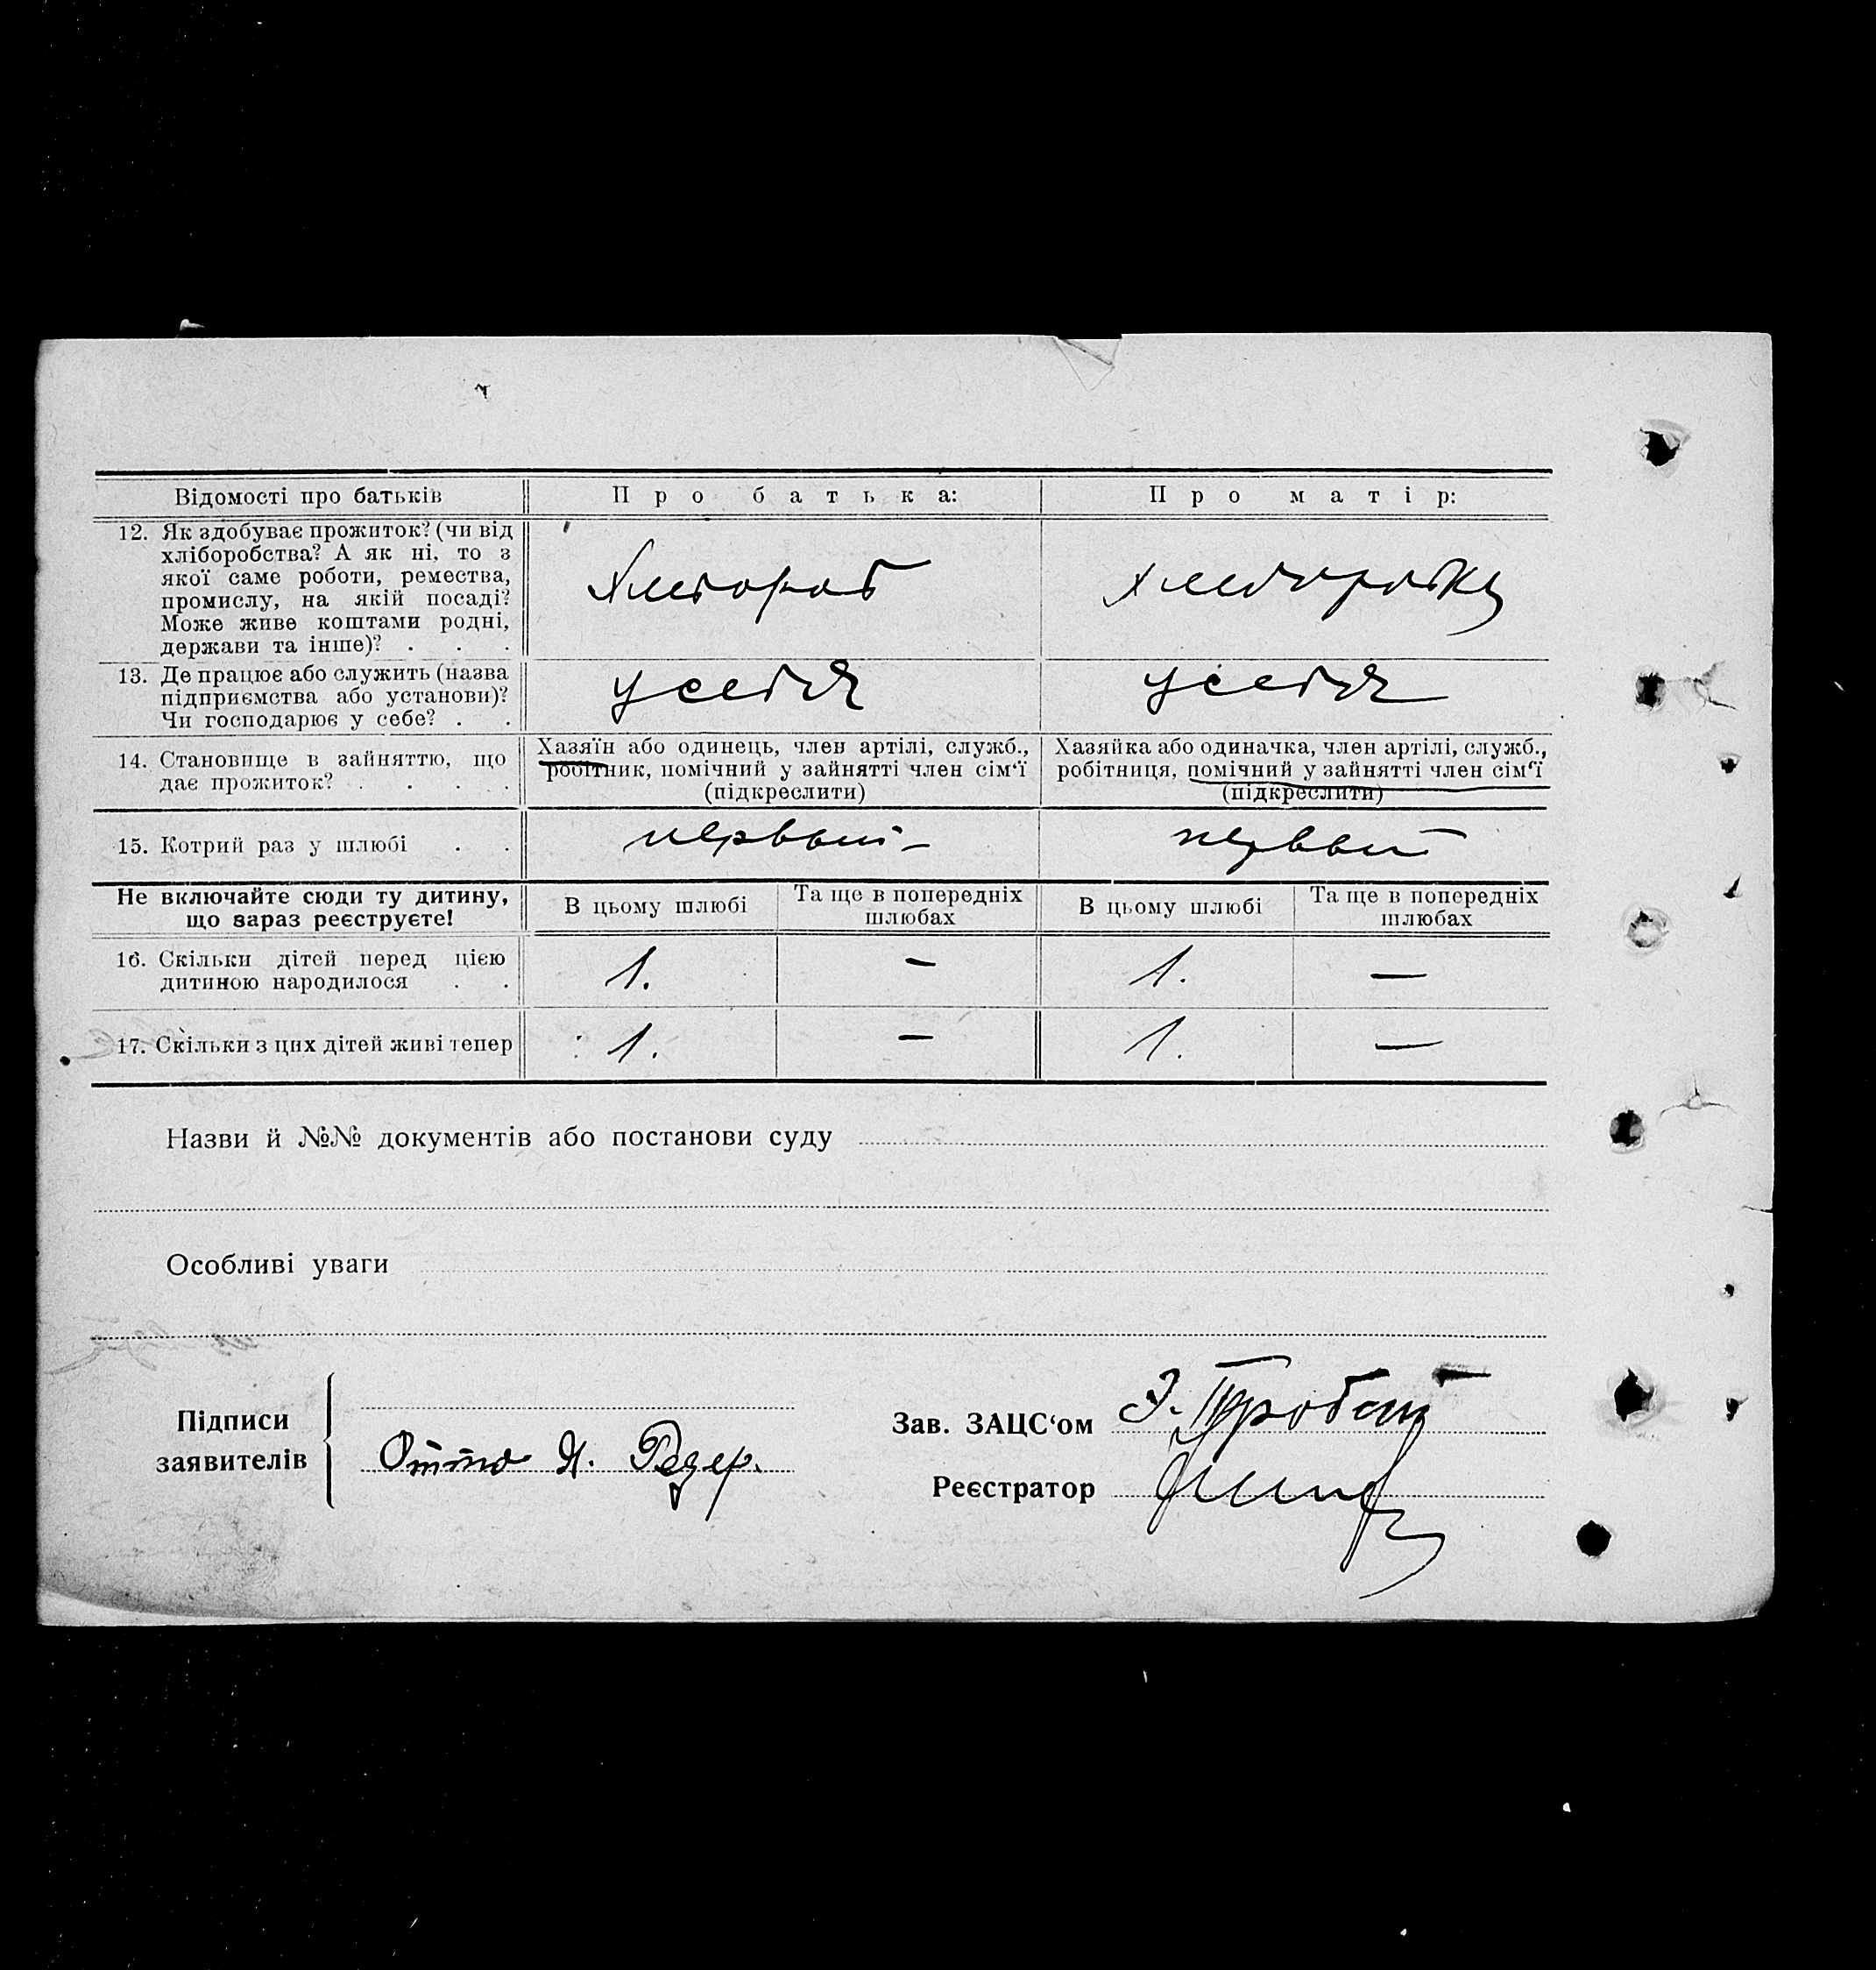 Відомості про батьків
Про батька:
Про матір:
12. Як здобуває прожиток? (чи від
хліборобства? А як ні, то з
якої саме роботи, ремества,
промислу, на якій посаді?
Може живе коштами родні,
держави та інше)? . . .
Хлебороб
хлеборобка
13. Де працює або служить (назва
підприємства або установи)?
Чи господарює у себе? . .
у себя
у себя
14. Становище в зайняттю, що
дає прожиток? . . . .
Хазяїн або одинець, член артілі, служб.,
робітник, помічний у зайнятті член сім'ї
(підкреслити)
Хазяйка або одиначка, член артілі, служб.,
робітниця, помічний у зайнятті член сім'ї
(підкреслити)
15. Котрий раз у шлюбі . .
первый
первый
Не включайте сюди ту дитину,
що зараз реєструєте!
В цьому шлюбі
Та ще в попередніх
шлюбах
В цьому шлюбі
Та ще в попередніх
шлюбах
16. Скільки дітей перед цією
дитиною народилося . .
1. — 1. —
17. Скільки з цих дітей живі тепер
1. — 1. —
Назви й №№ документів або постанови суду
Особливі уваги
Підписи
заявителів
Отто Я.
Зав. ЗАЦС'ом
Реєстратор